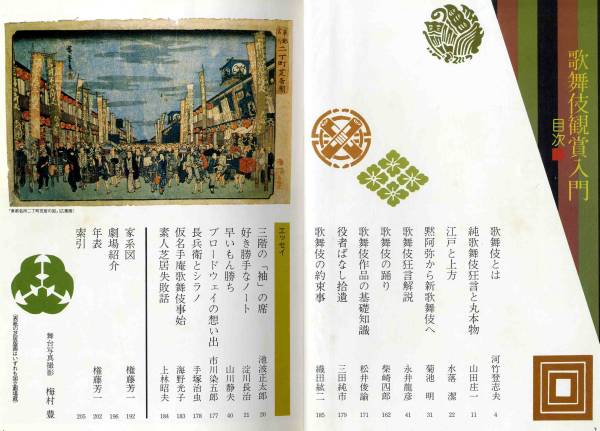 歌舞伎観賞入門
目次
歌舞伎とは 河竹登志夫 4
純歌舞伎狂言と丸本物 山田庄一 11
江戸と上方 水落潔 22
黙阿弥から新歌舞伎へ 菊池明 31
歌舞伎狂言解説 永井龍彦 41
歌舞伎の踊り 柴崎四郎 162
歌舞伎作品の基礎知識 松井俊諭 171
役者ばなし拾遺 三田純市 179
歌舞伎の約束事 織田紘二 185
エッセイ
三階の「袖」の席 池波正太郎 20
好き勝手なノート 淀川長治 21
早いもん勝ち 山川静夫 40
ブロードウェイの想い出 市川染五郎 177
長兵衛とシラノ 手塚治虫 178
仮名手庵歌舞伎事始 海野光子 183
素人芝居失敗話 上林昭夫 184
家系図 権藤芳一 192
劇場紹介 196
年表 権藤芳一 202
索引 205
舞台写真撮影 梅村豊
東都名所
二丁町芝居圖